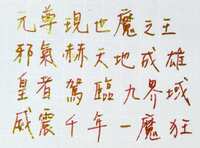 元尊現世魔之王
邪氣赫天地成雄
皇者駕臨九界域
威震千年一魔狂